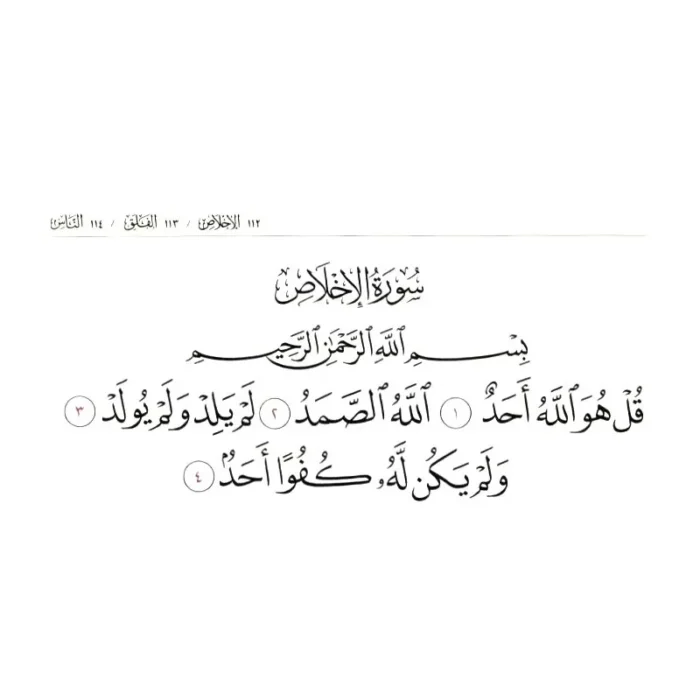 ١١٢ الإخلاص / ١١٣ الفلق / ١١٤ الناس
سُورَةُ الإِخْلَاصِ
بِسْمِ ٱللَّهِ ٱلرَّحْمَٰنِ ٱلرَّحِيمِ
قُلْ هُوَ ٱللَّهُ أَحَدٌ ١ ٱللَّهُ ٱلصَّمَدُ ٢ لَمْ يَلِدْ وَلَمْ يُولَدْ ٣
وَلَمْ يَكُن لَّهُۥ كُفُوًا أَحَدٌۢ ٤